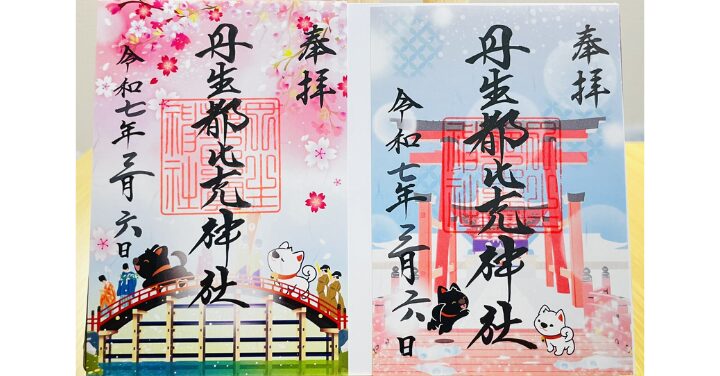 奉拝
丹生都比売神社
令和七年三月六日
奉拝
丹生都比売神社
令和七年三月六日